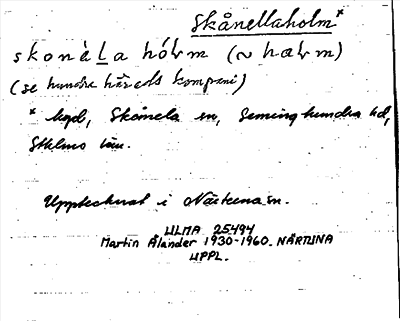 Skånellaholm*
skonèla hólm (~ halm)
(se hundra härads kompani)
* hgd, Skånela sn, Seminghundra hd,
Sthlms län.
Upptecknat i Närtuna sn.
ULMA 25494
Martin Ålander 1930-1960. NÄRTUNA
UPPL.